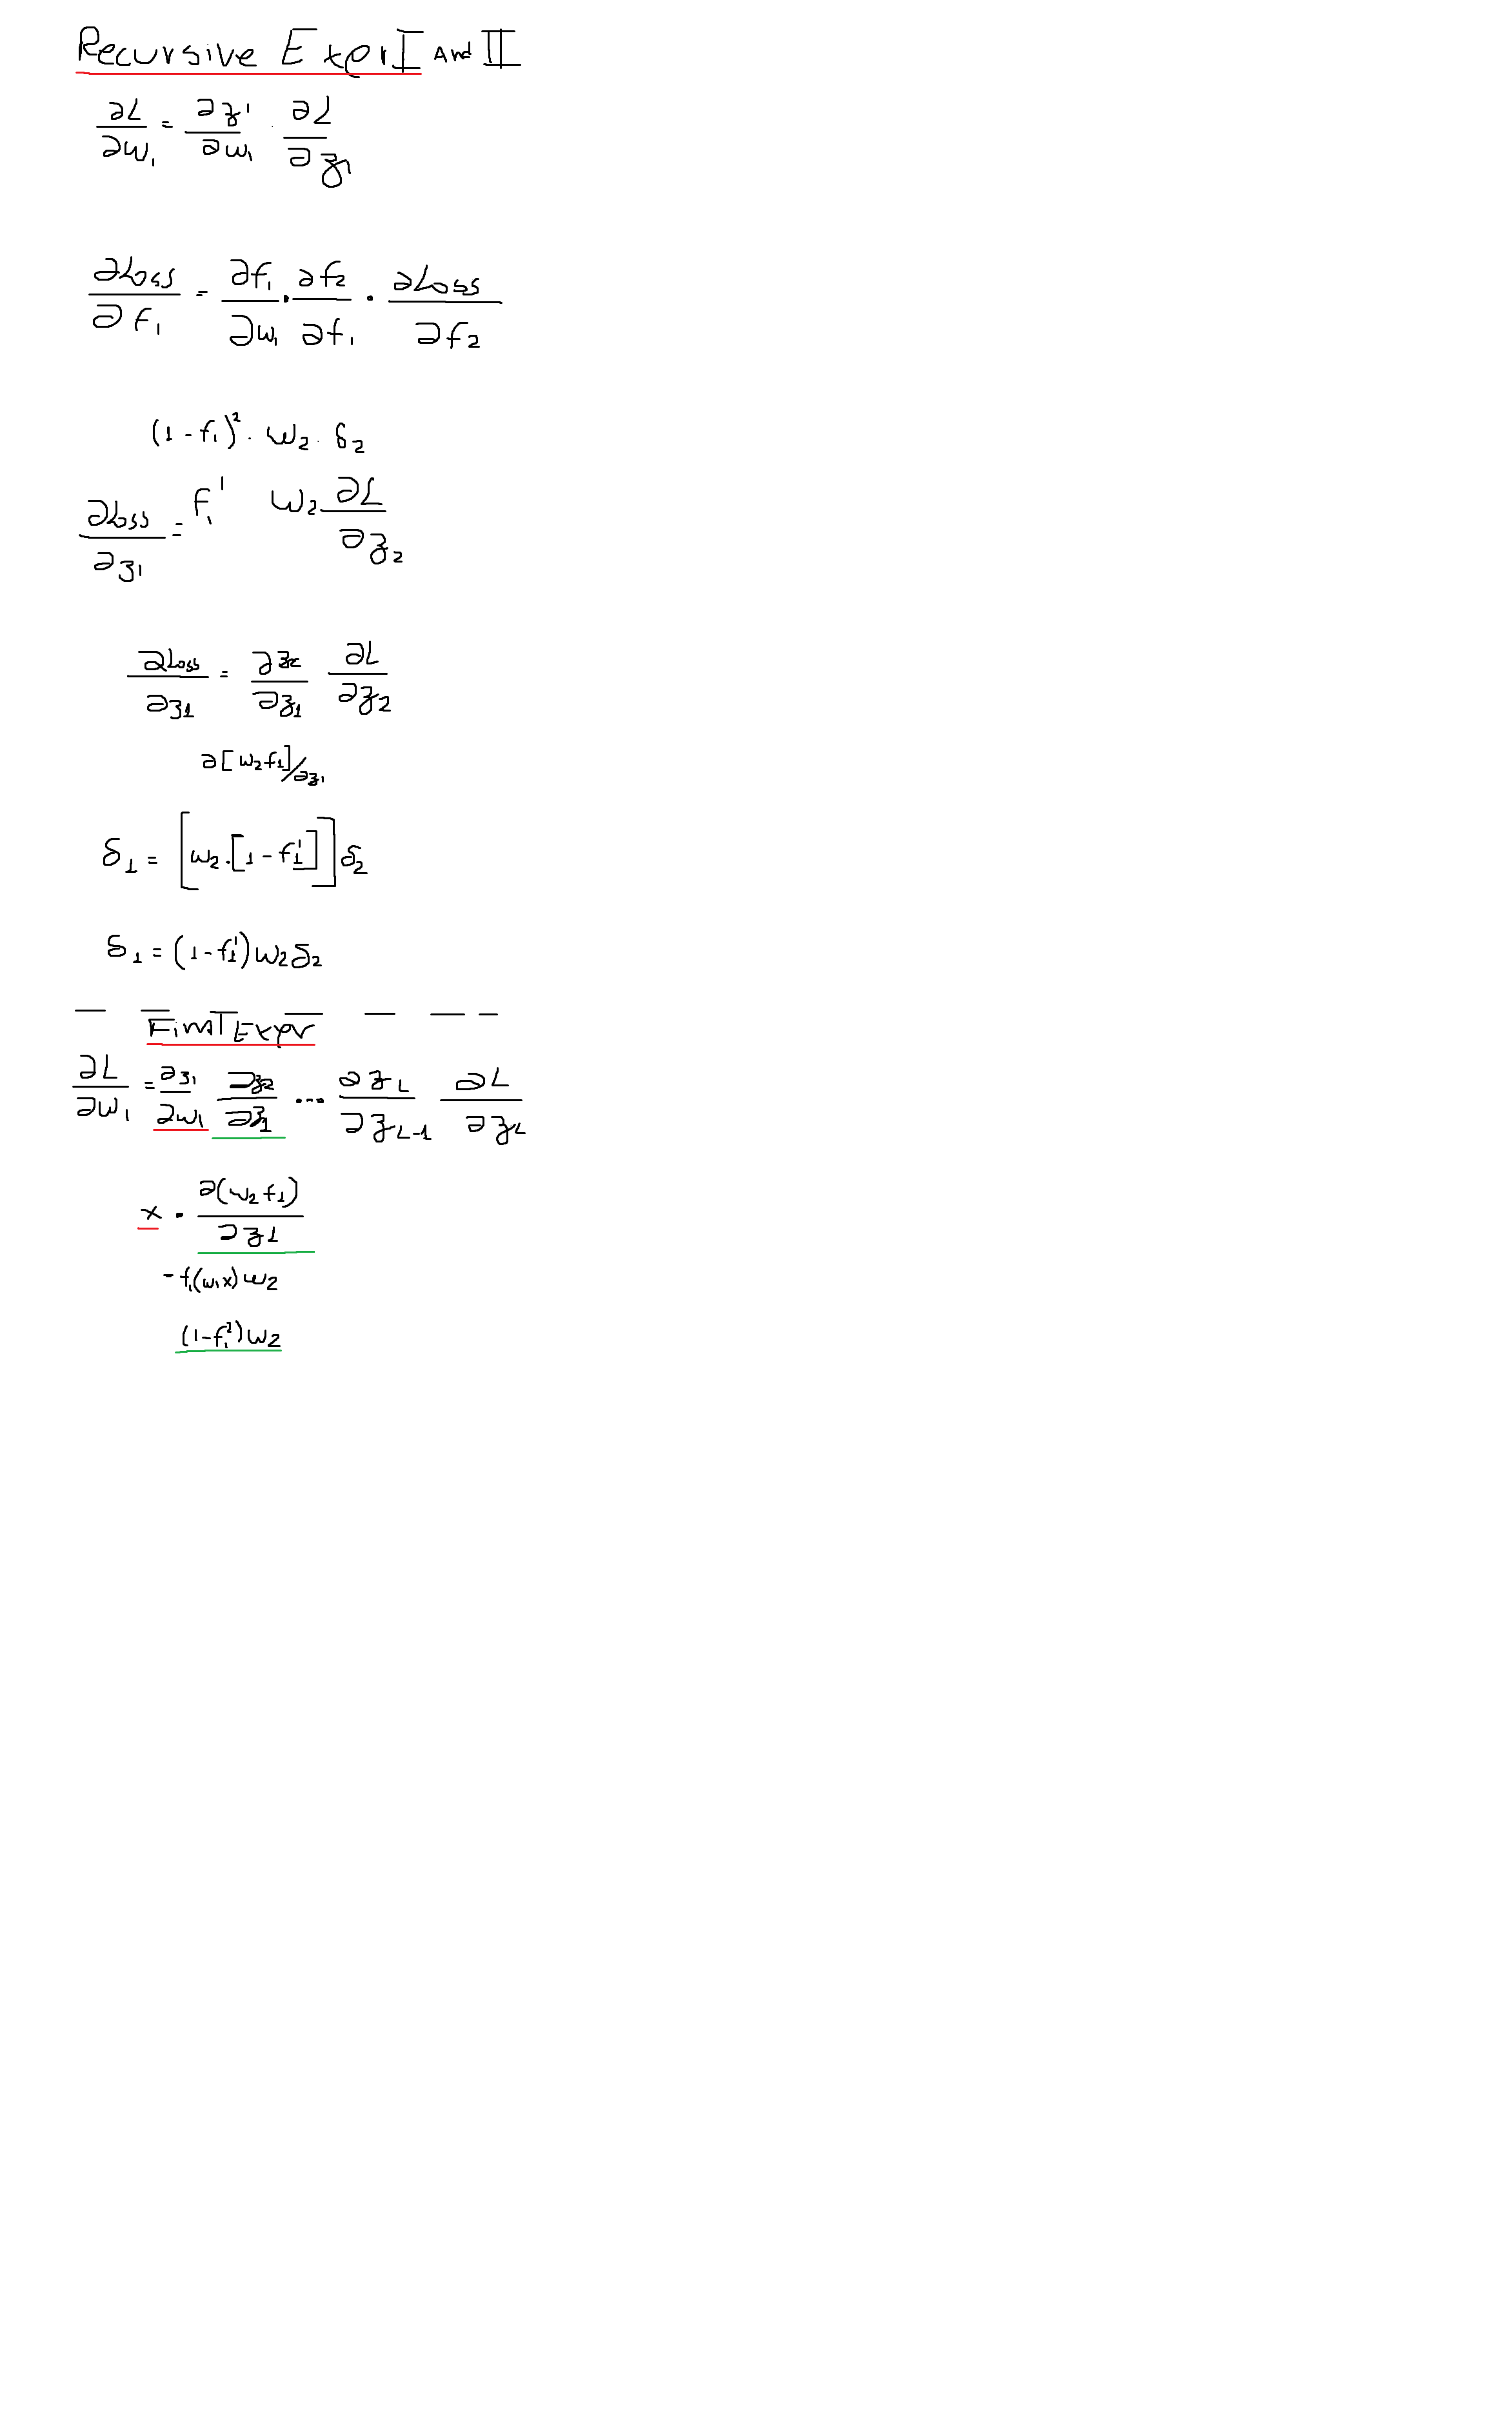 Recursive Expr I And II
∂L/∂w₁ = ∂z₁/∂w₁ · ∂L/∂z₁
∂Loss/∂f₁ = ∂f₁/∂w₁ · ∂f₂/∂f₁ · ∂Loss/∂f₂
(1 - f₁)² · w₂ · δ₂
∂Loss/∂z₁ = f₁' w₂ ∂L/∂z₂
∂Loss/∂z1 = ∂z₂/∂z1 ∂L/∂z2
∂[w₂f1]/∂z₁
δ1 = [w₂ · [1 - f1']] δ₂
δ1 = (1 - f1') w₂ δ₂
First Expr
∂L/∂w₁ = ∂z₁/∂w₁ ∂z₂/∂z1 ... ∂z_L/∂z_L-1 ∂L/∂z_L
x · ∂(w₂f1)/∂z1
- f₁(w₁x) w₂
(1 - f₁²) w₂